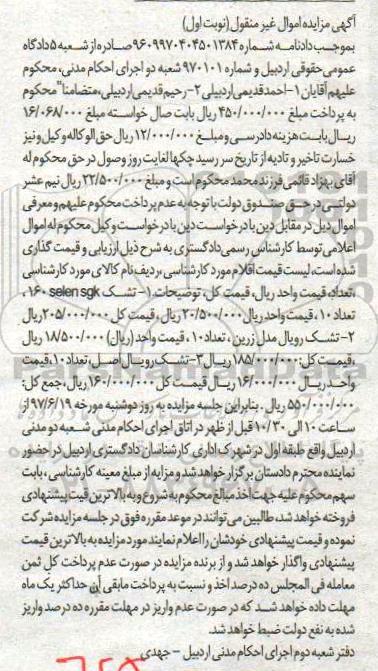 آگهی مزایده اموال غیر منقول (نوبت اول)
بموجب دادنامه شماره ۹۶۰۹۹۷۰۴۰۴۵۰۱۳۸۴ صادره از شعبه ۵ دادگاه
عمومی حقوقی اردبیل و شماره ۹۷۰۱۰۱ شعبه دو اجرای احکام مدنی، محکوم
علیهم آقایان ۱-احمد قدیمی اردبیلی ۲- رحیم قدیمی اردبیلی، متضامنا" محکوم
به پرداخت مبلغ ۴۵۰/۰۰۰/۰۰۰ ریال بابت صال خواسته مبلغ ۱۶/۰۶۸/۰۰۰
ریال بابت هزینه دادرسی و مبلغ ۱۲/۰۰۰/۰۰۰ ریال حق الوکاله وکیل و نیز
خسارت تاخیر و تادیه از تاریخ سر رسید چکها لغایت روز وصول در حق محکوم له
آقای بهزاد قائمی فرزند محمد محکوم است و مبلغ ۲۲/۵۰۰/۰۰۰ ریال نیم عشر
دولتی در حق صندوق دولت با توجه به عدم پرداخت محکوم علیهم و معرفی
اموال ذیل در مقابل دین با درخواست دین با درخواست وکیل محکوم له اموال
اعلامی توسط کارشناس رسمی دادگستری به شرح ذیل ارزیابی و قیمت گذاری
شده است، لیست قیمت اقلام مورد کارشناسی، ردیف نام کالای مورد کارشناسی
، تعداد، قیمت واحد ریال، قیمت کل، توضیحات. ۱- تشک selen sgk ۱۶۰،
تعداد ۱۰، قیمت واحد ریال ۲۰/۵۰۰/۰۰۰ ریال ، قیمت کل ۲۰۵/۰۰۰/۰۰۰ ریال
۲- تشک رویال مدل زرین ، تعداد ۱۰، قیمت واحد (ریال) ۱۸/۵۰۰/۰۰۰ ریال
، قیمت کل: ۱۸۵/۰۰۰/۰۰۰ ریال ۳- تشک رویال اصل، تعداد ۱۰، قیمت
واحد ریال ۱۶/۰۰۰/۰۰۰ ریال قیمت کل ۱۶۰/۰۰۰/۰۰۰ ریال، جمع کل:
۵۵۰/۰۰۰/۰۰۰ ریال. بنابراین جلسه مزایده به روز دوشنبه مورخه ۹۷/۶/۱۹ از
ساعت ۱۰ الی ۱۰/۳۰ قبل از ظهر در اتاق اجرای احکام مدنی شعبه دو مدنی
اردبیل واقع طبقه اول در شهرک اداری کارشناسان دادگستری اردبیل در حضور
نماینده محترم دادستان برگزار خواهد شد و مزایه از مبلغ معینه کارشناسی، بابت
سهم محکوم علیه جهت اخذ مبالغ محکوم به شروع و به بالاترین قیت پیشنهادی
فروخته خواهد شد، طالبین می‌توانند در موعد مقرره فوق در جلسه مزایده شرکت
نموده و قیمت پیشنهادی خودشان را اعلام نمایند مورد مزایده به بالاترین قیمت
پیشنهادی واگذار خواهد شد و از برنده مزایده در صورت عدم پرداخت کل ثمن
معامله فی المجلس ده درصد اخذ و نسبت به پرداخت مابقی آن حداکثر یک ماه
مهلت داده خواهد شد که در صورت عدم واریز در مهلت مقرره ده درصد واریز
شده به نفع دولت ضبط خواهد شد.
دفتر شعبه دوم اجرای احکام مدنی اردبیل - جهدی